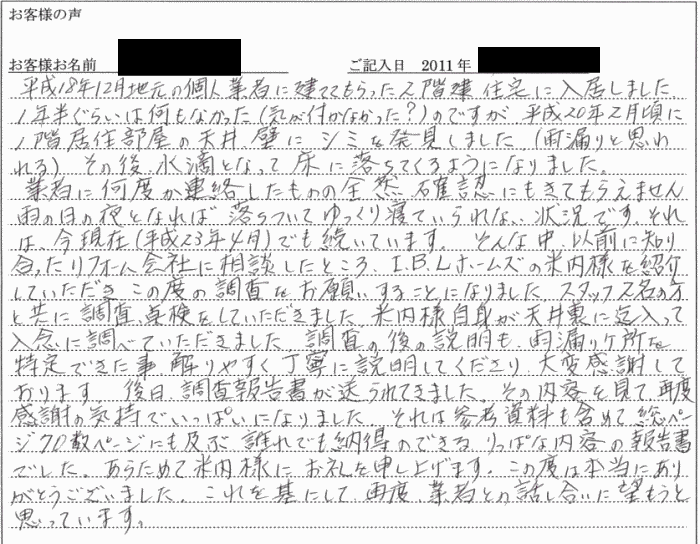 お客様の声
お客様お名前 ご記入日 2011年
平成18年12月地元の個人業者に建ててもらった2階建住宅に入居しました。
1年半ぐらいは何もなかった(気が付かなかった?)のですが、平成20年2月頃に
1階居住部屋の天井、壁にシミを発見しました(雨漏りと思わ
れる)。その後、水滴となって床に落ちてくるようになりました。
業者に何度か連絡したものの全然確認にもきてもらえません
雨の日の夜となれば落ちついてゆっくり寝ていられない状況です。それ
は、今現在(平成23年4月)でも続いています。そんな中、以前に知り
合ったリフォーム会社に相談したところ、I.B.Lホームズの米内様を紹介
していただき、この度の調査をお願いすることになりました。スタッフ2名の方
と共に調査、点検をしていただきました。米内様自身が天井裏に迄入って
入念に調べていただきました。調査の後の説明も、雨漏りケ所を
特定できた事、解りやすく丁寧に説明してくださり、大変感謝して
おります。後日、調査報告書が送られてきました。その内容を見て再度
感謝の気持でいっぱいになりました。それは参考資料も含めて総ペー
ジ70数ページにも及ぶ誰れでも納得のできるりっぱな内容の報告書
でした。あらためて米内様にお礼を申し上げます。この度は本当にあり
がとうございました。これを基にして再度業者との話し合いに望もうと
思っています。